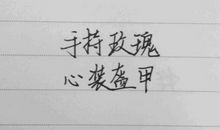 手持玫瑰
心装盔甲